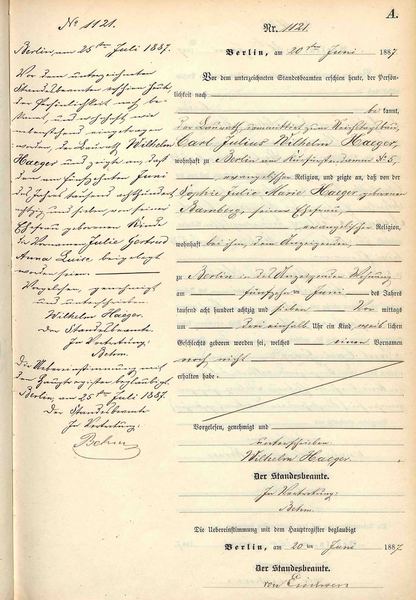 A.
Nr. 1121.
Berlin, am 20ten Juni 1887.
Vor dem unterzeichneten Standesbeamten erschien heute, der Persön-
lichkeit nach
be kannt,
der Baurath,
Carl Julius Wilhelm Haeger,
wohnhaft zu Berlin am 5,
evangelischer Religion, und zeigte an, daß von der
Sophie Julie Marie Haeger geborenen
Bamberg, seiner Ehefrau,
evangelischer Religion,
wohnhaft bei ihm, dem Anzeigenden,
zu Berlin in des Anzeigenden Wohnung
am fünfzehn ten Juni des Jahrs
tausend acht hundert achtzig und sieben Vor mittags
um drei einhalb Uhr ein Kind weib lichen
Geschlechts geboren worden sei, welches einen Vornamen
noch nicht
erhalten habe.
Vorgelesen, genehmigt und
unterschrieben
Wilhelm Haeger.
Der Standesbeamte.
In Vertretung:
Behm.
Die Uebereinstimmung mit dem Hauptregister beglaubigt
Berlin, am 20 ten Juni 1887
Der Standesbeamte.
No 1121.
Berlin, am 25ten Juli 1887.
Vor dem unterzeichneten
Standesbeamten erschien heute
der Persönlichkeit nach be-
kannt,
der Baurath Wilhelm
Haeger und zeigte an, daß
dem am fünfzehnten Juni
des Jahres tausend achthundert
achtzig und sieben von seiner
Ehefrau geborenen Kinde
die Vornamen Julie Gertrud
Anna Luise beigelegt
worden seien.
Vorgelesen, genehmigt
und unterschrieben
Wilhelm Haeger.
Der Standesbeamte.
In Vertretung:
Behm.
Die Uebereinstimmung mit
dem Hauptregister beglaubigt.
Berlin, am 25ten Juli 1887.
Der Standesbeamte
In Vertretung:
Behm